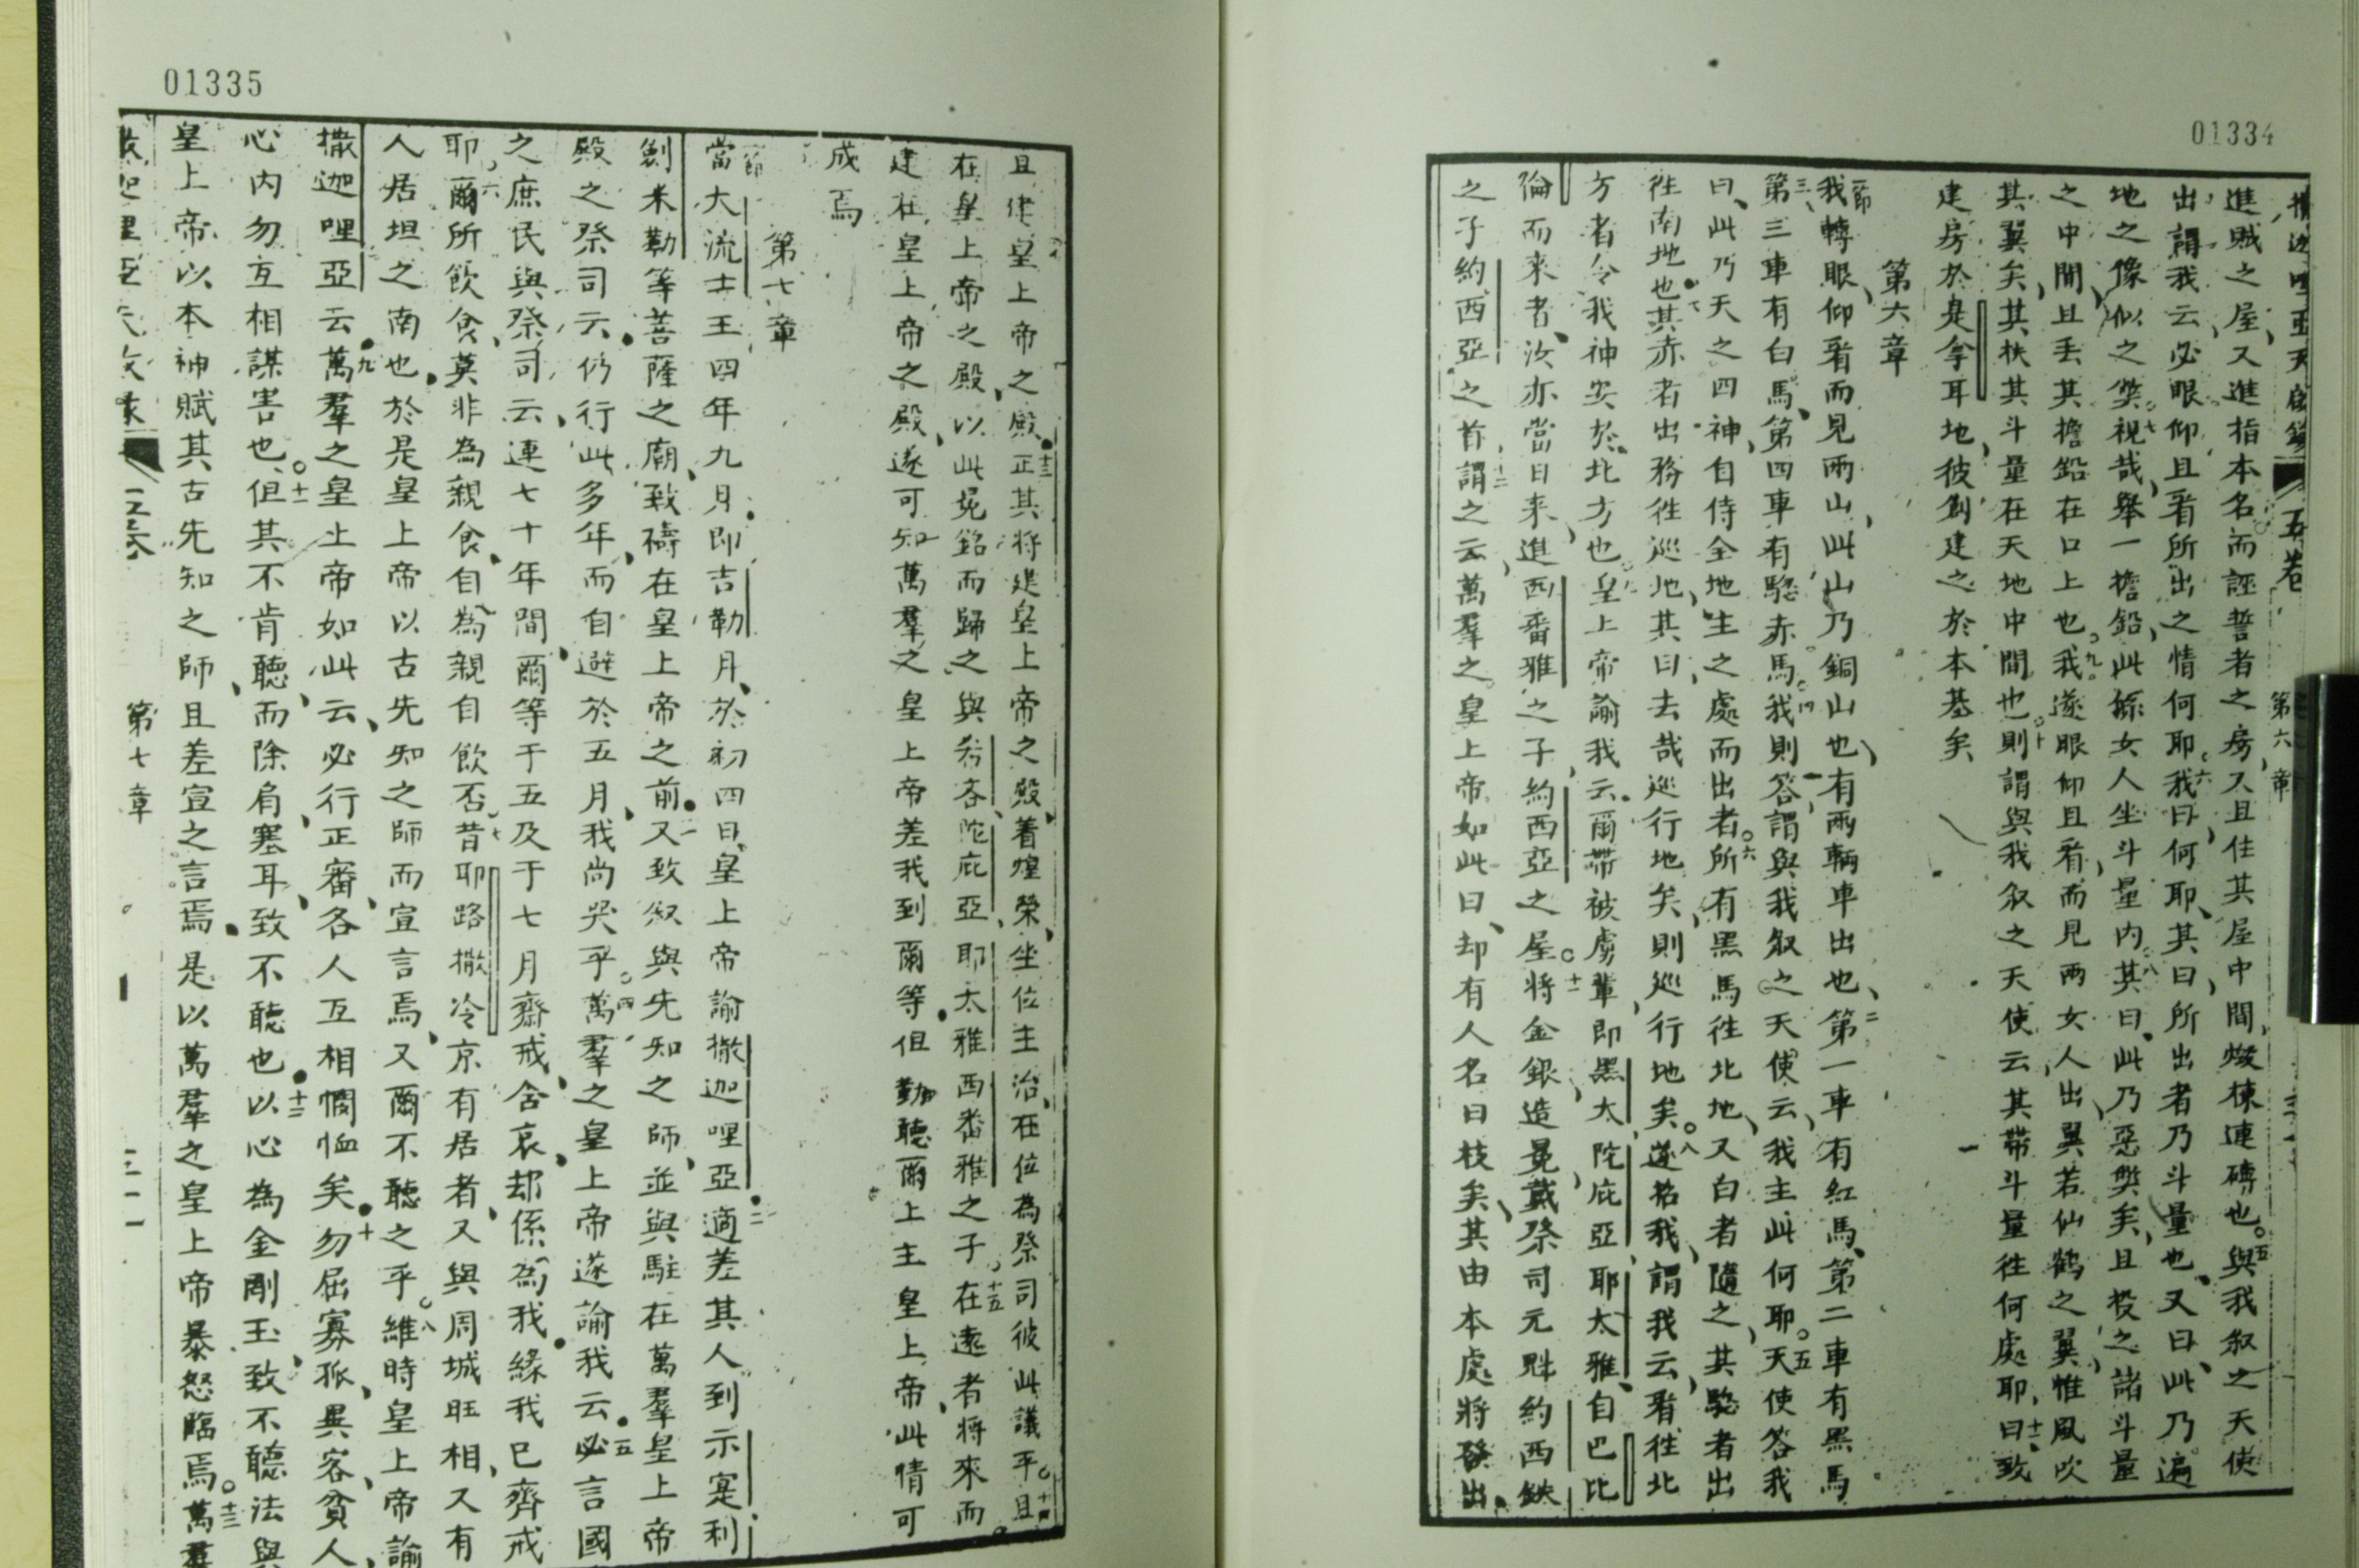 01334
五卷
第六章
進賊之屋又進指本名而誣誓者之房又且住其屋中間燬棟連磚也五與我叙之天使
出謂我云必眼仰且看所出之情何耶六我曰何耶其曰所出者乃斗量也又曰此乃遍
地之像似之獘七視哉舉一擔鉛此孫女人坐斗量內八其曰此乃惡獘矣且投之諸斗量
之中間且丟其擔鉛在口上也九我遂眼仰且看而見兩女人出翼若仙鶴之翼惟風吹
其翼矣其扶其斗量在天地中間也十則謂與我叙之天使云其帶斗量往何處耶十一曰致
建房於是拿耳地彼創建之於本基矣
第六章
一節我轉眼仰看而見兩山此山乃銅山也有兩輛車出也二第一車有紅馬第二車有黑馬
三第三車有白馬第四車有駹赤馬四我則答謂與我叙之天使云我主此何耶五天使答我
曰此乃天之四神自侍全地主之處而出者六所有黑馬往北地又白者隨之其駹者出
往南地也七其赤者出務往巡地其曰去哉巡行地矣則巡行地矣八遂招我謂我云看往北
方者令我神安於北方也九皇上帝諭我云十爾帶被虜輩即黑太陀庇亞耶太雅自巴比
倫而來者汝亦當日來進西番雅之子約西亞之屋十一將金銀造冕戴祭司元魁約西鉄
之子約西亞之首十二謂之云萬羣之皇上帝如此曰却有人名曰枝矣其由本處將發出
01335
且建皇上帝之殿十三正其將建皇上帝之殿着煌榮坐位主治在位為祭司彼此議平且十四
在皇上帝之殿以此冕銘而歸之與希吝陀庇亞耶太雅西番雅之子十五在遠者將來而
建在皇上帝之殿遂可知萬羣之皇上帝差我到爾等但勤聽爾上主皇上帝此情可
成焉
第七章
一節當大流士王四年九月即吉勒月於初四日皇上帝諭撒迦哩亞二適差其人到示寔利
創米勒等菩薩之廟致禱在皇上帝之前三又致叙與先知之師並與駐在萬羣皇上帝
殿之祭司云仍行此多年而自避於五月我尚哭乎四萬羣之皇上帝遂諭我云五必言國
之庶民與祭司云連七十年間爾等于五及于七月齋戒含哀却係為我緣我已齊戒
耶六爾所飲食莫非為親食自為親自飲否七昔耶路撒冷京有居者又與周城旺相又有
人居坦之南也於是皇上帝以古先知之師而宣言焉又爾不聽之乎八維時皇上帝諭
撒迦哩亞云九萬羣之皇上帝如此云必行正審各人互相憫恤矣十勿屈寡孤異客貧人
心內勿互相謀害也十一但其不肯聽而除肩塞耳致不聽也十二以心為金剛玉致不聽法與
皇上帝以本神賦其古先知之師且差宣之言焉是以萬羣之皇上帝暴怒臨焉十三萬羣
第七章